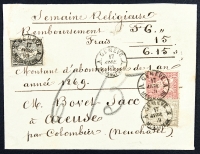 Semaine Religieuse
Remboursement F 6.,,
Frais ,, 15
6.15
Montant d'abonnement d'un
année 1869.
GENÈVE
M. Bovet-Sacc
à Areuse
par Colombier (Neuchâtel)